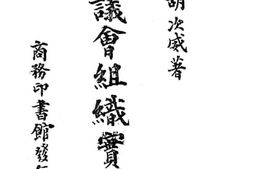 胡次威著
議會組織實
商務印書館發